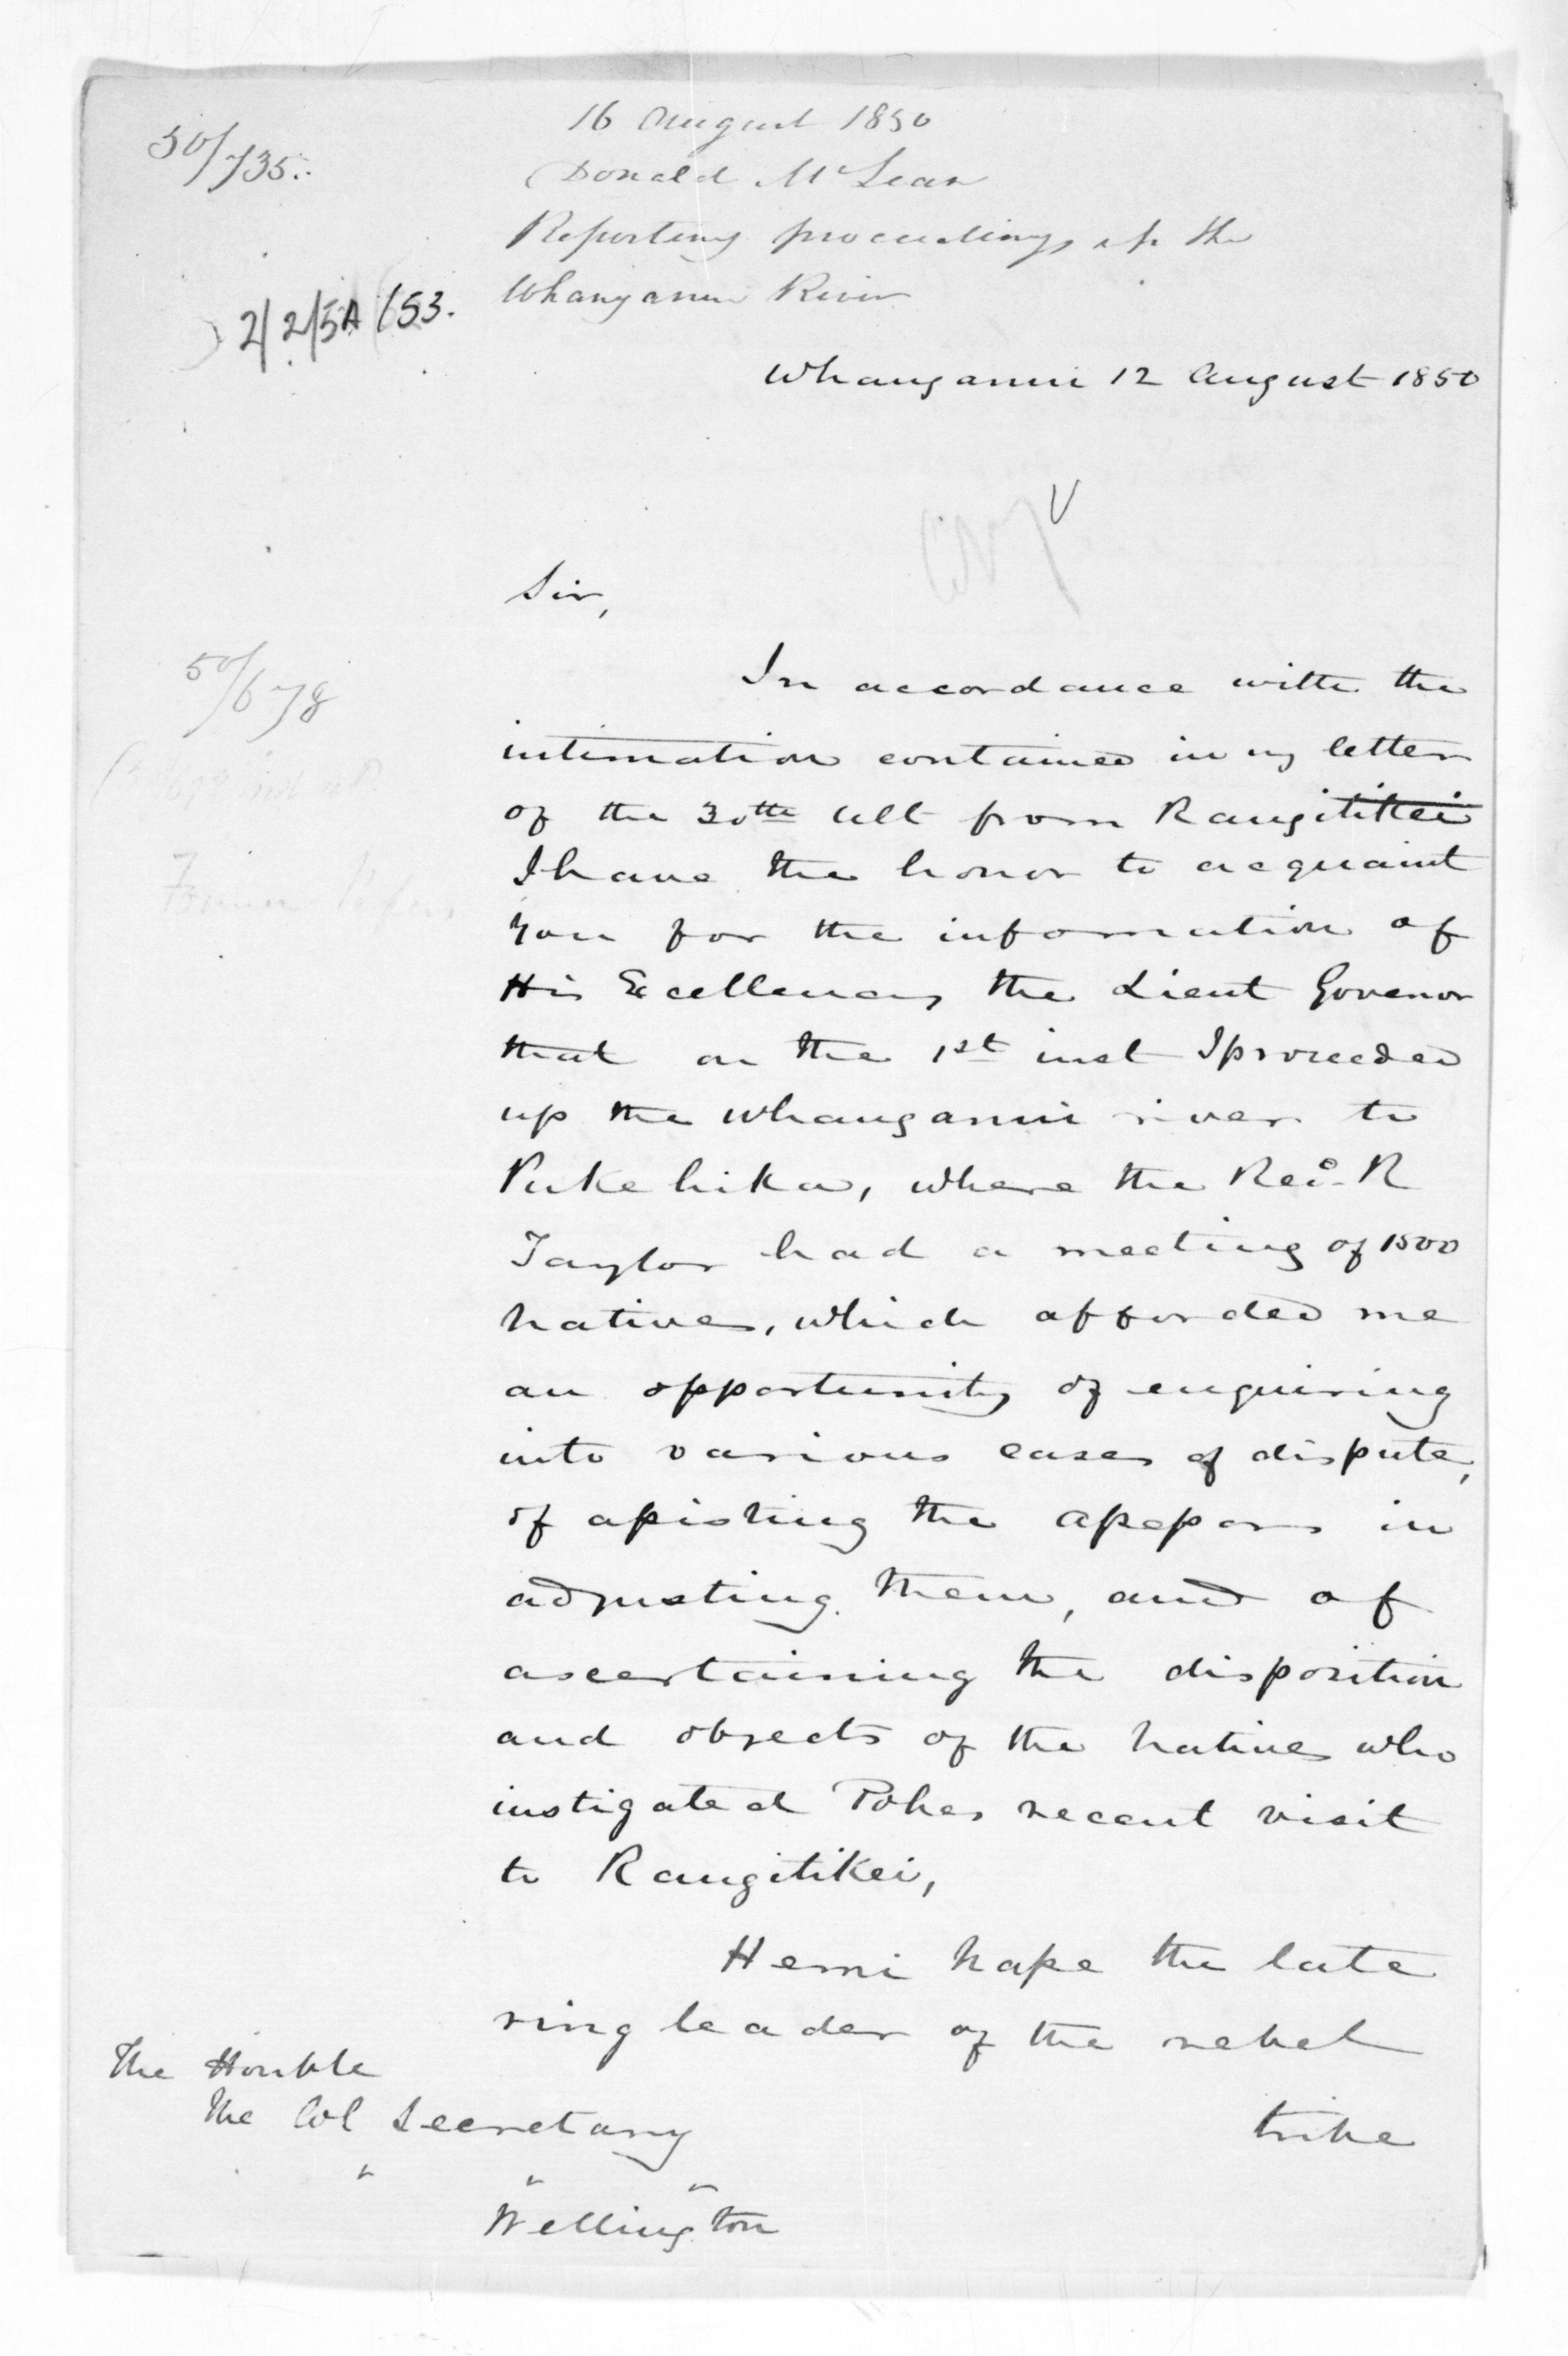 50/735.
16 August 1850
Donald McLean
Reporting proceedings up the
Whanganui River
2/2/5A/53.
Whanganui 12 August 1850
Sir,
50/678
In accordance with the
intimation contained in my letter
of the 30th ult from Rangitikei
I have the honor to acquaint
you for the information of
His Excellency the Lieut Govenor
that on the 1st inst I proceeded
up the Whanganui river to
Pukehika, where the Revd R
Taylor had a meeting of 1500
natives, which afforded me
an opportunity of enquiring
into various cases of dispute,
of assisting the assessors in
adjusting them, and of
ascertaining the disposition
and objects of the natives who
instigated Pohes recent visit
to Rangitikei,
Hemi Nape the late
ring leader of the rebel
tribe
The Honble
The Col Secretary
" " "
Wellington